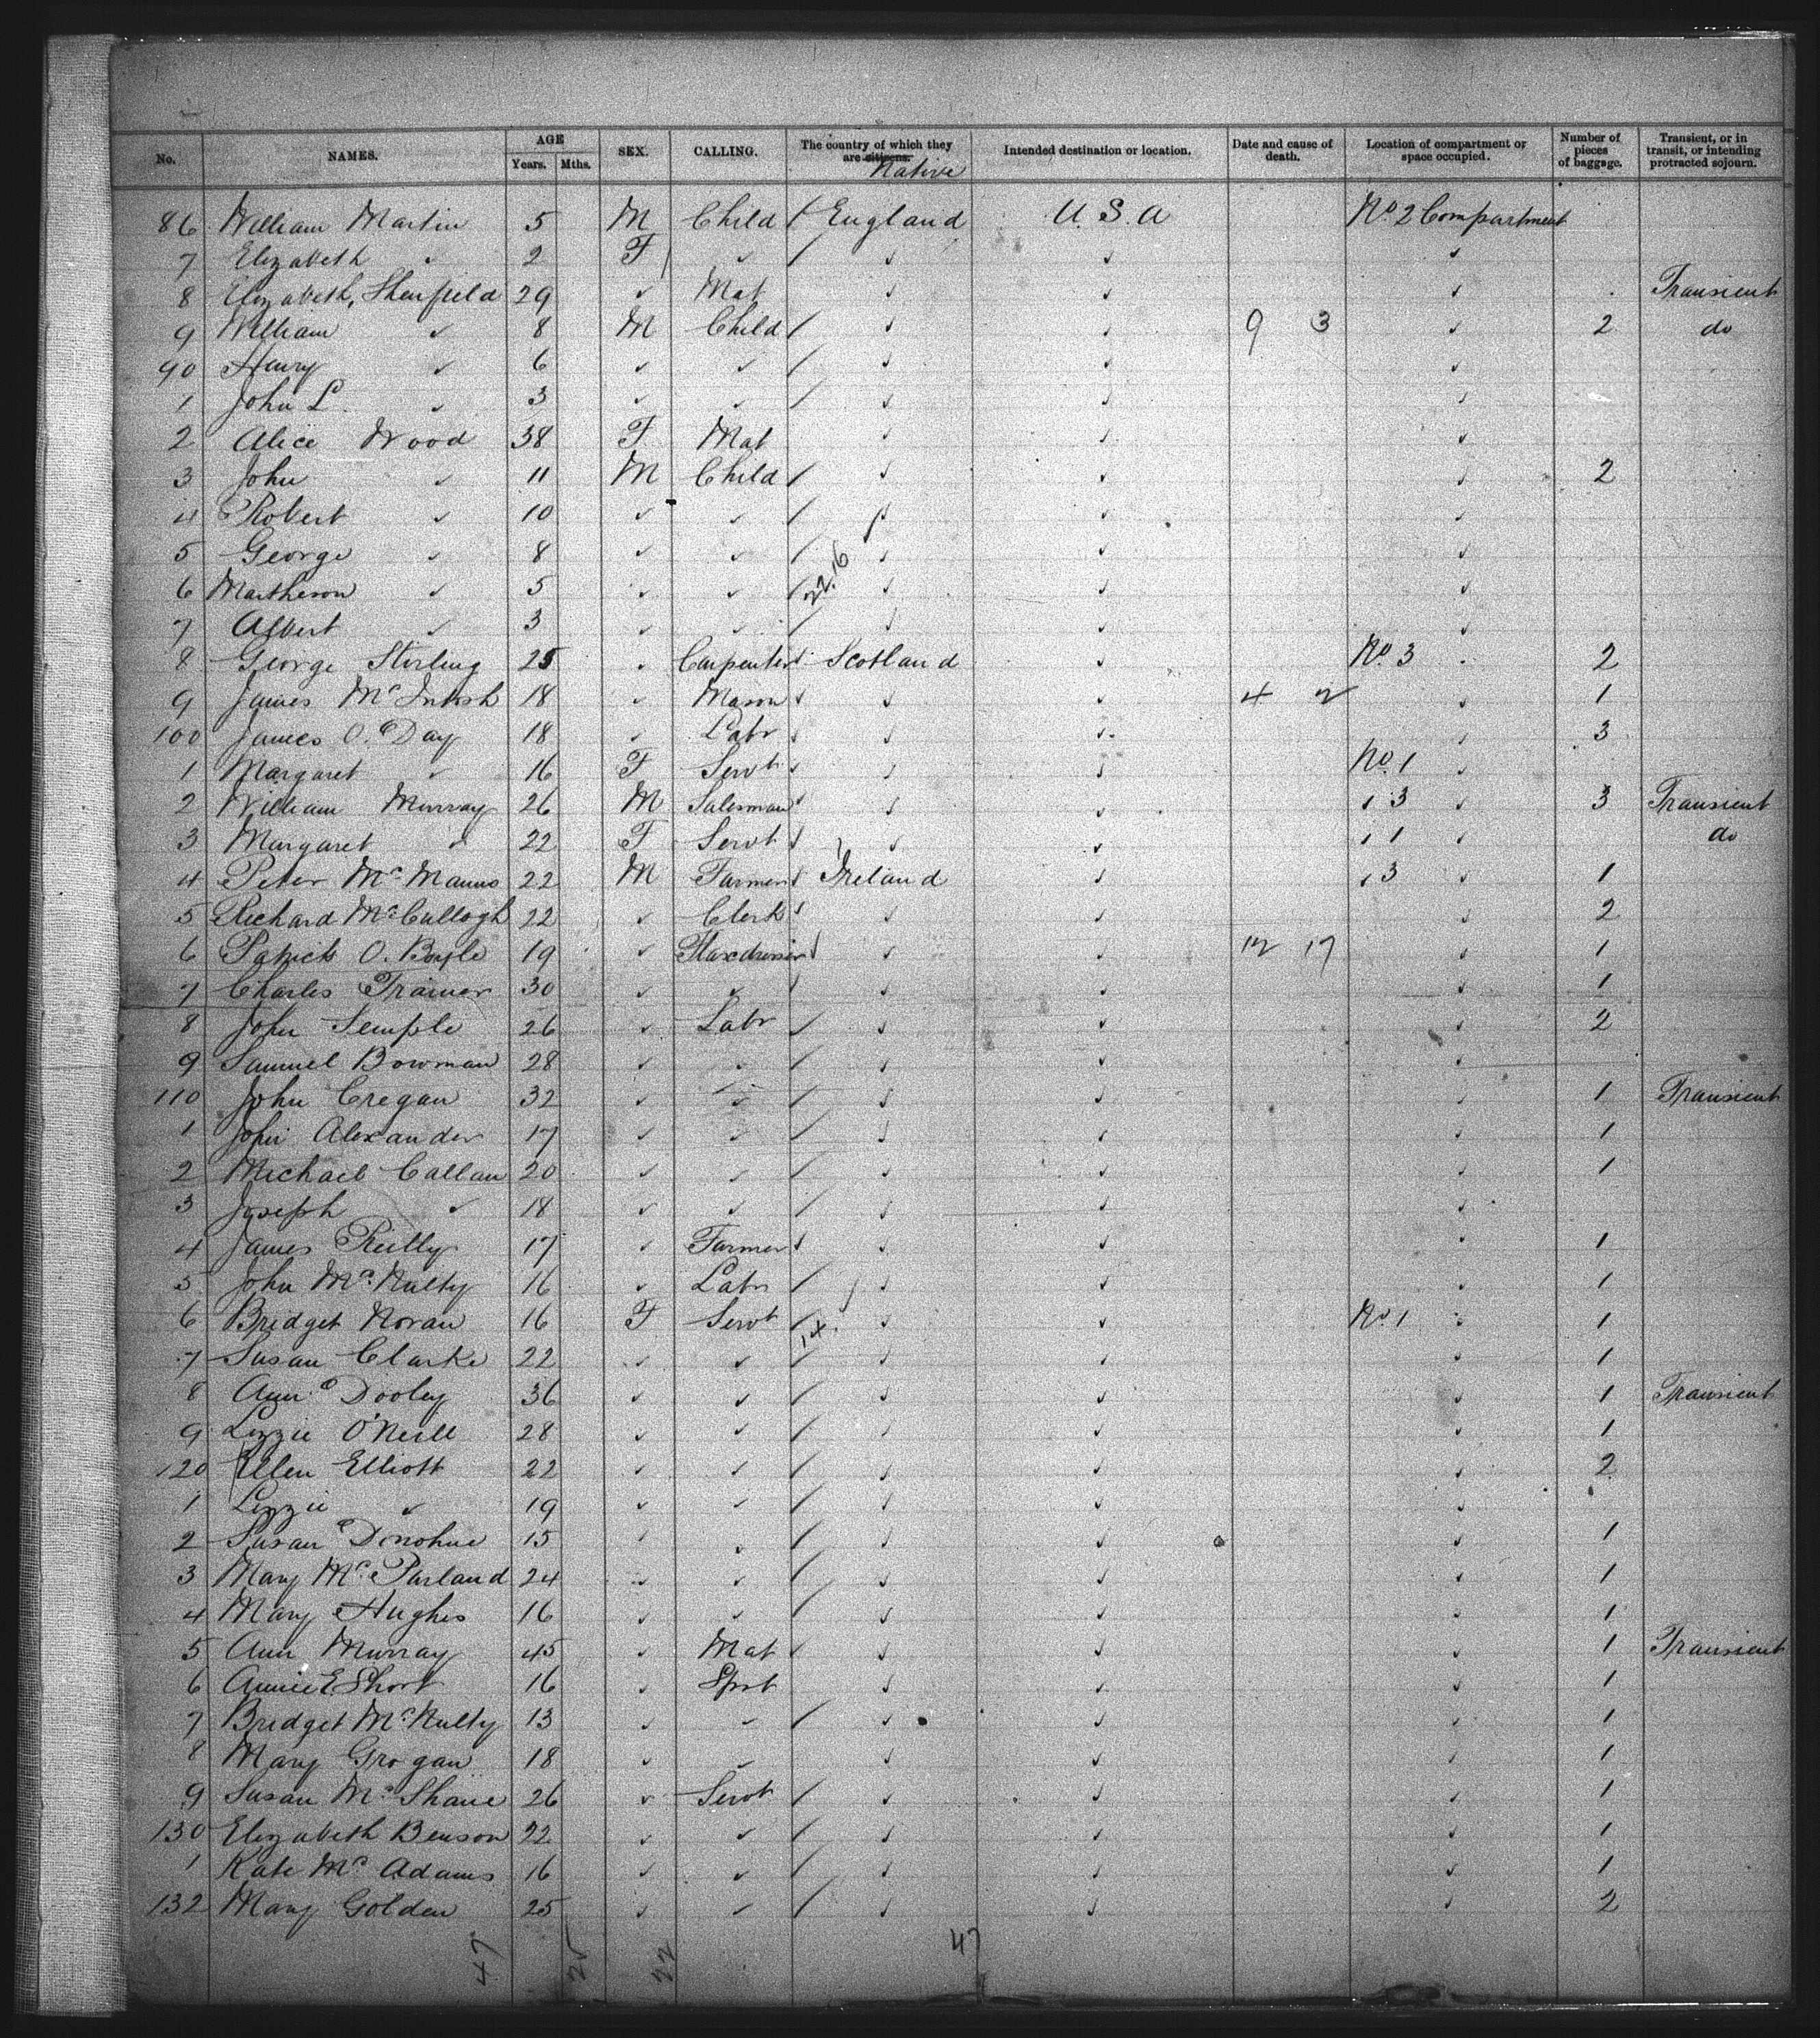 No. NAMES. AGE Years. Mths. SEX. CALLING. The country of which they are citizens. Native Intended destination or location. Date and cause of death. Location of compartment or space occupied. Number of pieces of baggage. Transient, or in transit, or intending protracted sojourn.
86 William Martin 5 M Child / England U.S.A No 2 Compartment
7 Elizabeth ✓ 2 F ✓ / ✓ ✓ ✓
8 Elizabeth, Shenfield 29 ✓ Mat ✓ ✓ ✓ Transient
9 William ✓ 8 M Child / ✓ ✓ 9 3 ✓ 2 do
90 Henry ✓ 6 ✓ ✓ / ✓ ✓ ✓
1 John L. ✓ 3 ✓ ✓ / ✓ ✓ ✓
2 Alice Wood 38 F Mat ✓ ✓ ✓
3 John ✓ 11 M Child / ✓ ✓ ✓ 2
4 Robert ✓ 10 ✓ ✓ / ✓ ✓ ✓
5 George ✓ 8 ✓ ✓ / ✓ ✓ ✓
6 Martheson ✓ 5 ✓ ✓ / 22.16 ✓ ✓ ✓
7 Albert ✓ 3 ✓ ✓ / ✓ ✓ ✓
8 George Stirling 25 ✓ Carpenter Scotland ✓ No. 3 ✓ 2
9 James Mc Intosh 18 ✓ Mason ✓ ✓ 4 2 ✓ 1
100 James O. Day 18 ✓ Labr ✓ ✓ ✓ 3
1 Margaret ✓ 16 F Servt ✓ ✓ No. 1 ✓
2 William Murray 26 M Salesman ✓ ✓ ✓ 3 ✓ 3 Transient
3 Margaret ✓ 22 F Servt ✓ ✓ ✓ 1 ✓ do
4 Peter Mc Manus 22 M Farmer Ireland ✓ ✓ 3 ✓ 1
5 Richard Mc Cullogh 22 ✓ Clerk ✓ ✓ ✓ 2
6 Patrick O. Boyle 19 ✓ Flaxdresser ✓ ✓ 12 17 ✓ 1
7 Charles Trainor 30 ✓ ✓ ✓ ✓ ✓ 1
8 John Semple 26 ✓ Labr / ✓ ✓ ✓ 2
9 Samuel Bowman 28 ✓ ✓ / ✓ ✓ ✓
110 John Cregan 32 ✓ ✓ / ✓ ✓ ✓ 1 Transient
1 John Alexander 17 ✓ ✓ / ✓ ✓ ✓ 1
2 Michael Callan 20 ✓ ✓ / ✓ ✓ ✓ 1
3 Joseph ✓ 18 ✓ ✓ / ✓ ✓ ✓
4 James Reilly 17 ✓ Farmer ✓ ✓ ✓ 1
5 John Mc Nulty 16 ✓ Labr / ✓ ✓ ✓ 1
6 Bridget Horan 16 F Servt / 14. ✓ ✓ No. 1 ✓ 1
7 Susan Clarke 22 ✓ ✓ / ✓ ✓ ✓ 1
8 Ann Dooley 36 ✓ ✓ / ✓ ✓ ✓ 1 Transient
9 Lizzie O'Neill 28 ✓ ✓ / ✓ ✓ ✓ 1
120 Ellen Elliott 22 ✓ ✓ / ✓ ✓ ✓ 2
1 Lizzie ✓ 19 ✓ ✓ / ✓ ✓ ✓
2 Susan Donohue 15 ✓ ✓ / ✓ ✓ ✓ 1
3 Mary Mc Parland 24 ✓ ✓ / ✓ ✓ ✓ 1
4 Mary Hughes 16 ✓ ✓ / ✓ ✓ ✓ 1
5 Ann Murray 45 ✓ Mat ✓ ✓ ✓ 1 Transient
6 Annie E Short 16 ✓ Spst ✓ ✓ ✓ 1
7 Bridget Mc Nulty 13 ✓ ✓ / ✓ ✓ ✓ 1
8 Mary Grogan 18 ✓ ✓ ✓ ✓ ✓ 1
9 Susan Mc Shane 26 ✓ Servt / ✓ ✓ ✓ 1
130 Elizabeth Benson 22 ✓ ✓ / ✓ ✓ ✓ 1
1 Kate Mc Adams 16 ✓ ✓ / ✓ ✓ ✓ 1
132 Mary Golden 25 ✓ ✓ / ✓ ✓ ✓ 2
47 25 22 47